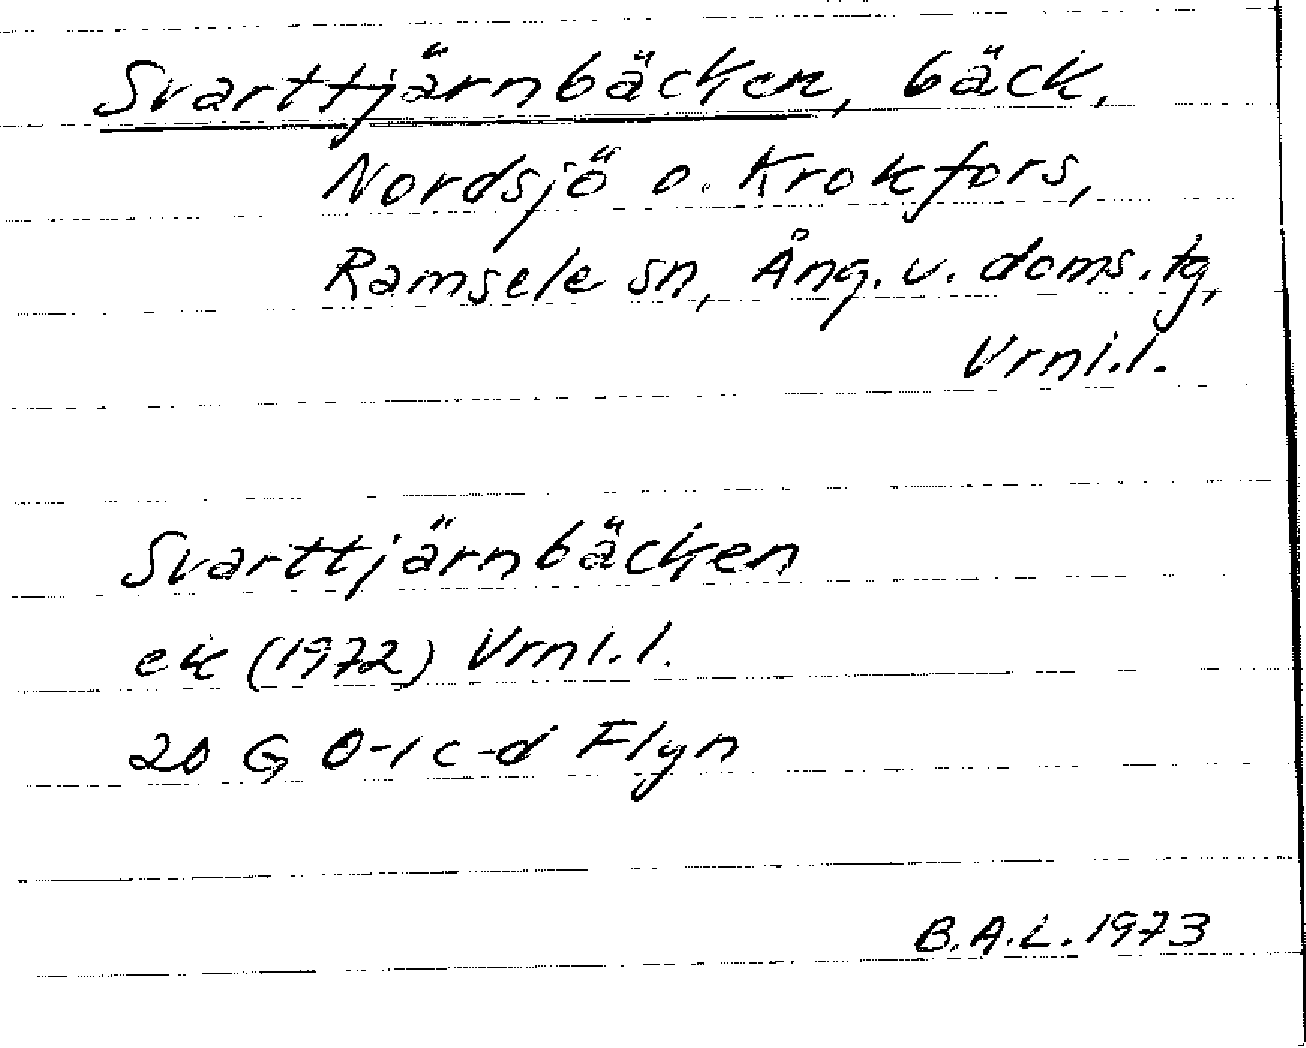 Svarttjärnbäcken, bäck,
Nordsjö o. Krokfors,
Ramsele sn, Ång. v. doms. tg,
Vrnl.l.
Svarttjärnbäcken
ek (1972) Vrnl.l.
20 G 0-1 c-d Flyn
B.A.L. 1973